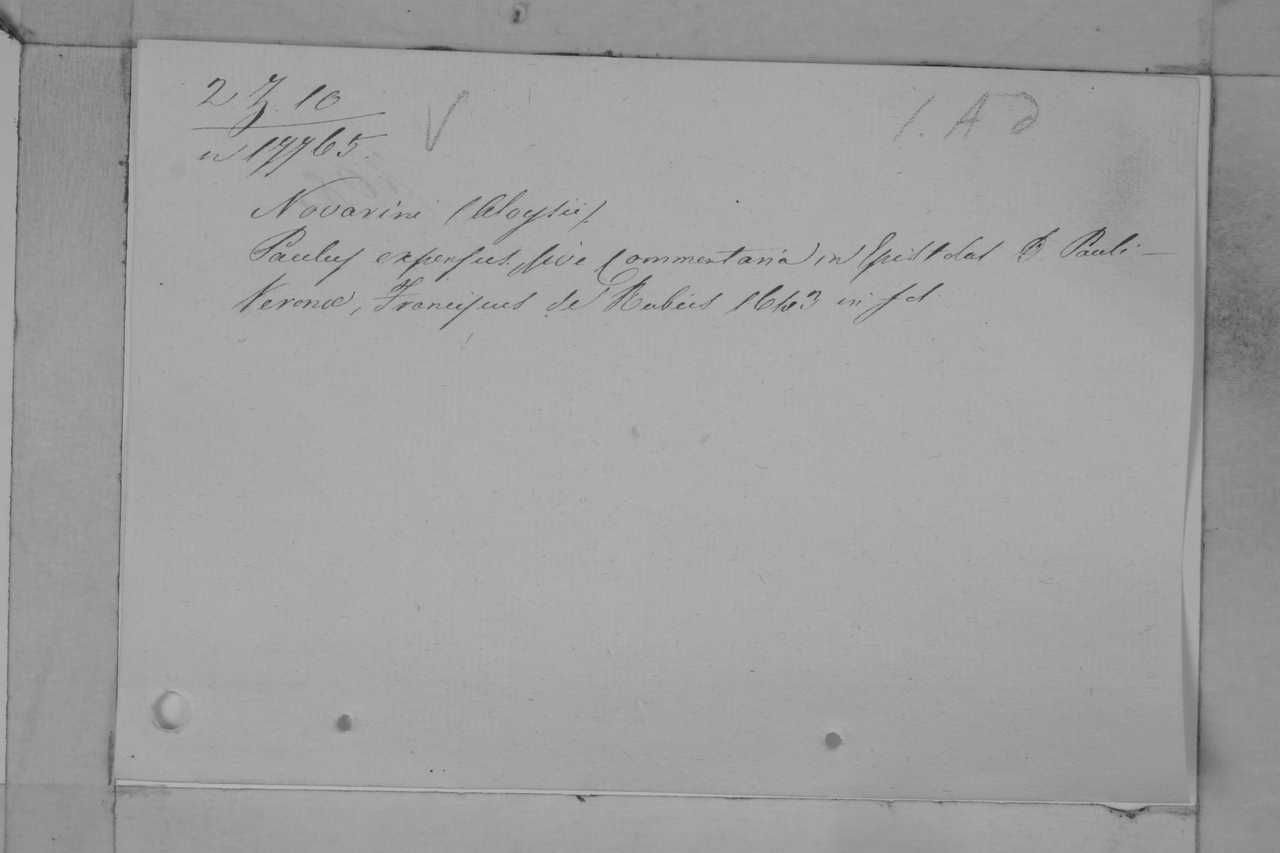 2 Z. 10 V 1. A d
n 17765.
Novarini (Aloysii)
Paulus expensus, sive Commentaria in Epistolas D. Pauli —
Veronæ, Franciscus de Rubeis 1643 in fol.